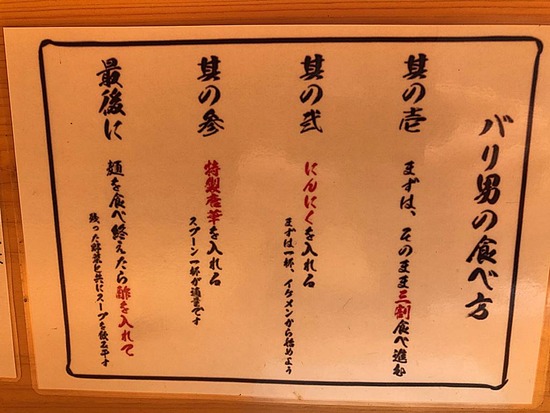 バリ男の食べ方
其の壱
まずは、そのまま三割食べ進む
其の弐
にんにくを入れる
まずは一杯、イケメンから始めよう
其の参
特製唐華を入れる
スプーン一杯が適量です
最後に
麺を食べ終えたら酢を入れて
残った野菜と共にスープを飲み干す